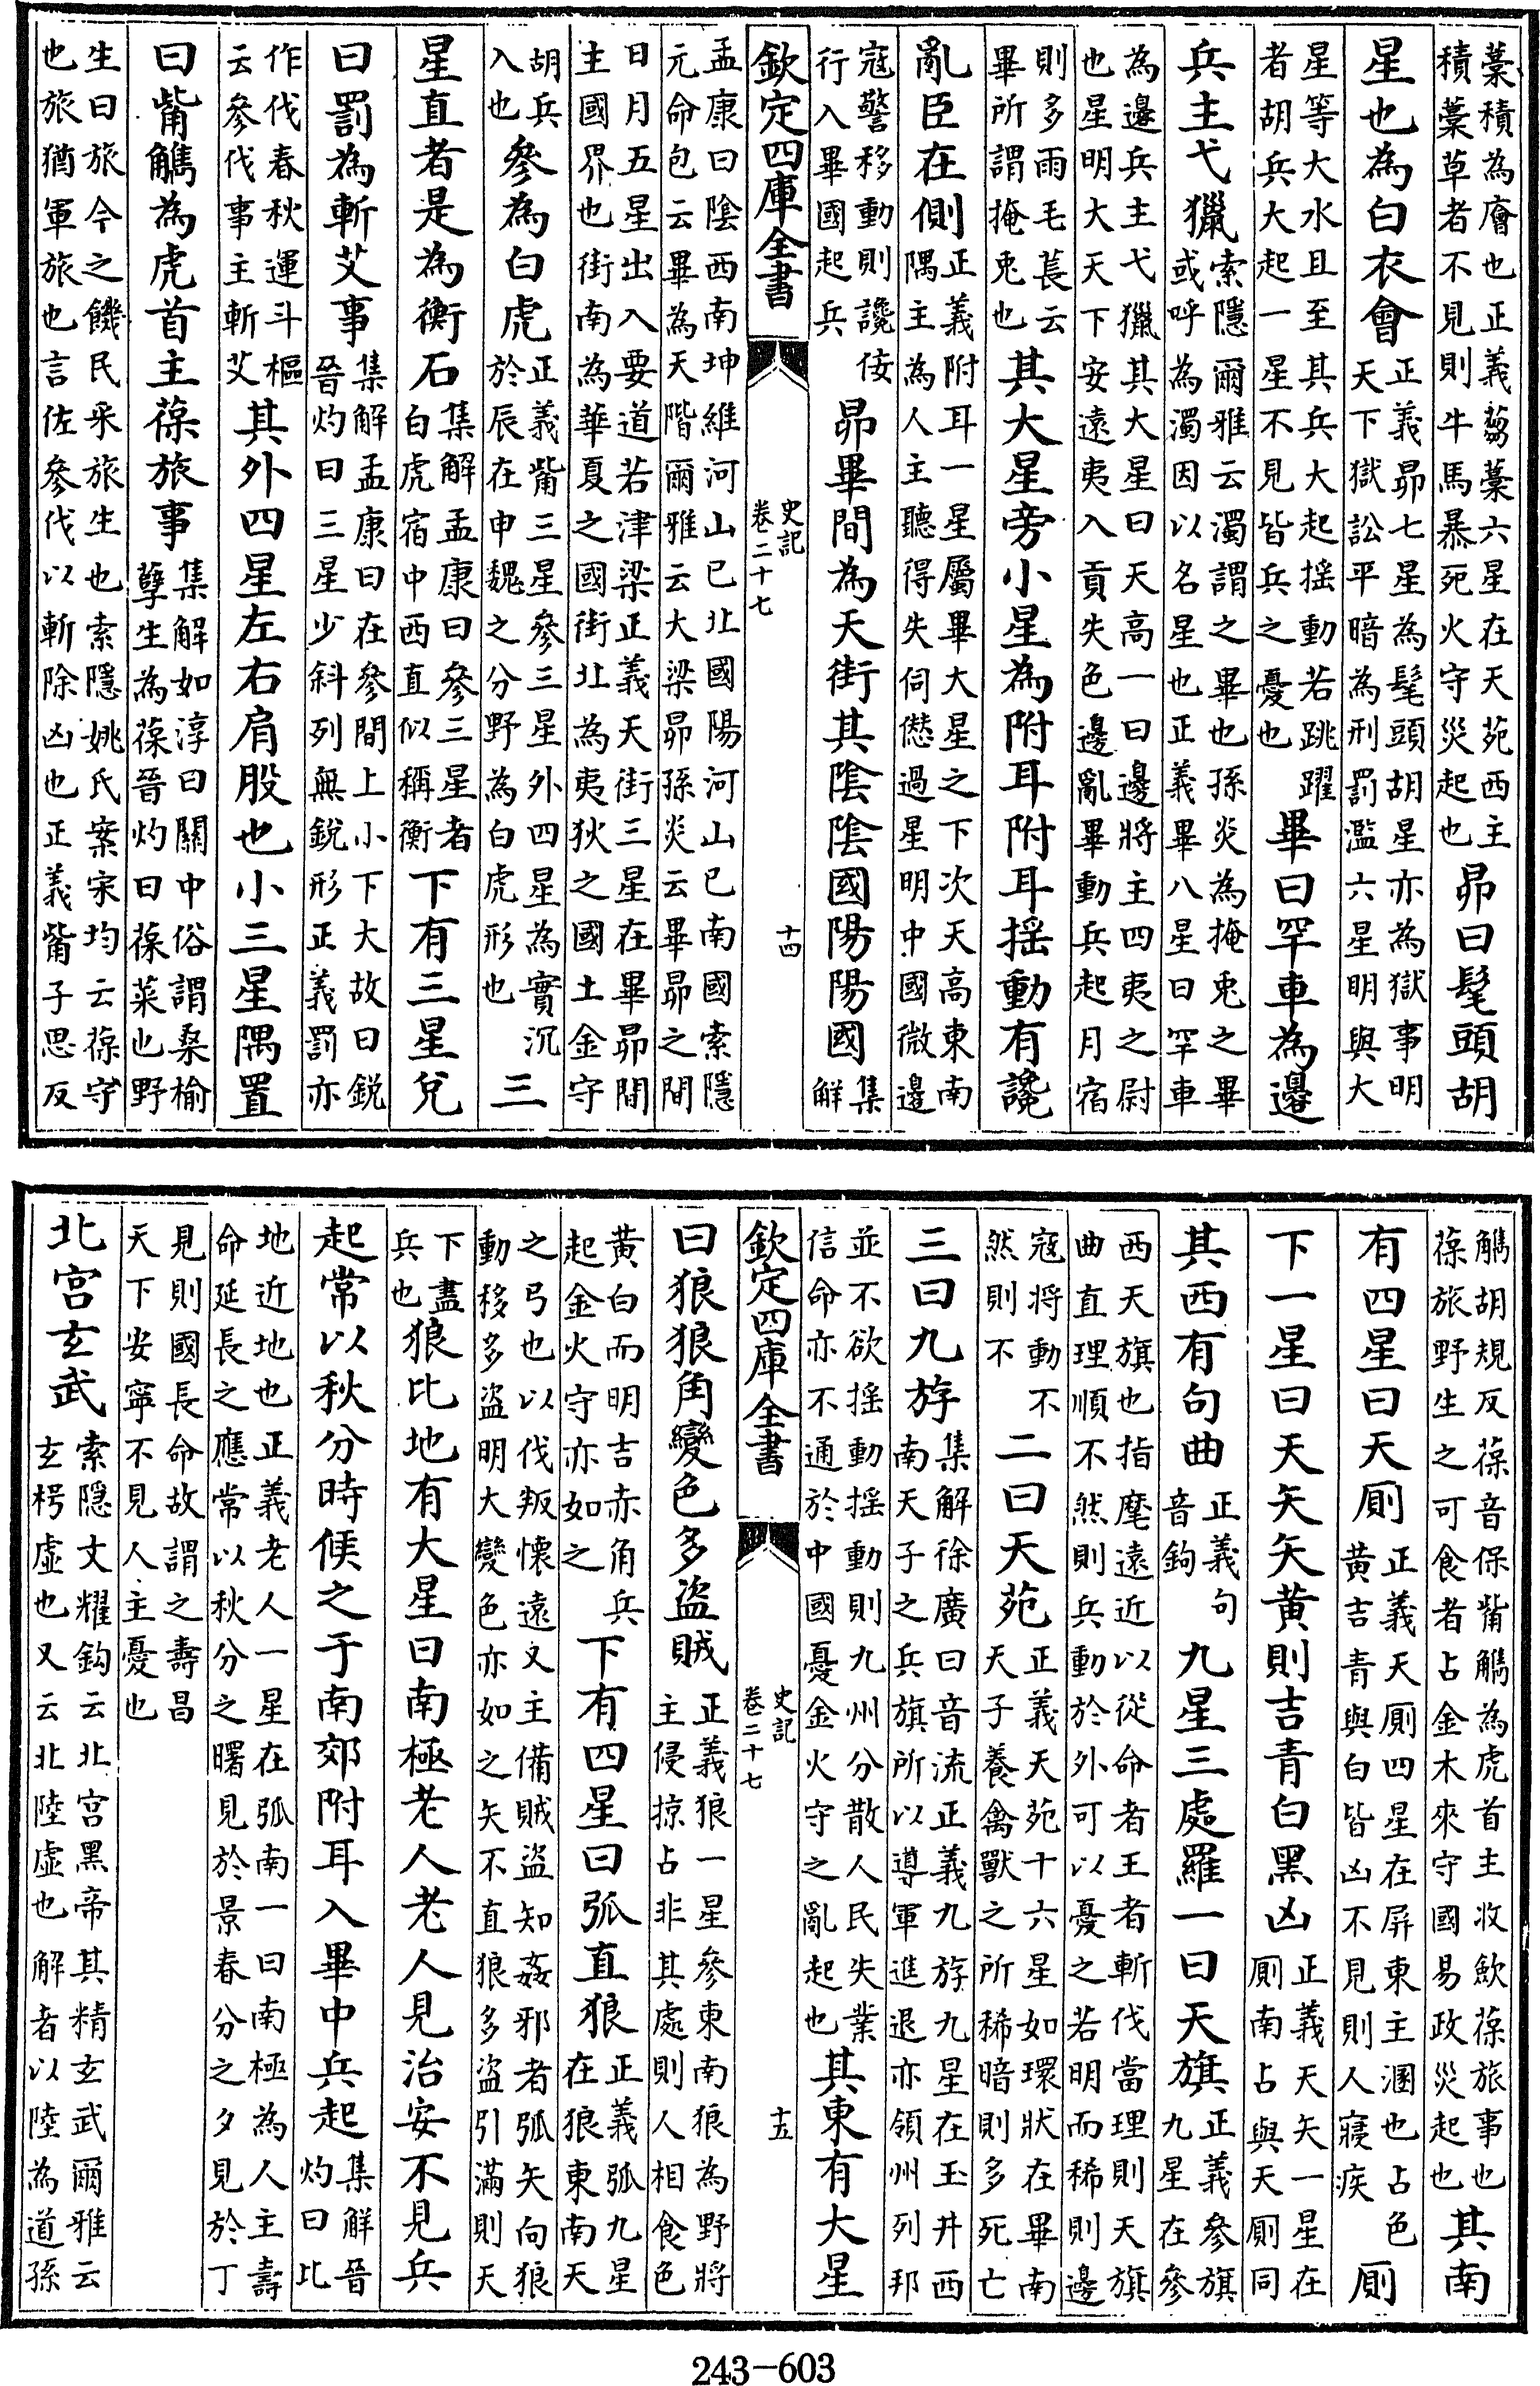 藁積為廥也正義芻藁六星在天苑西主
積藁草者不見則牛馬暴死火守災起也
昴曰髦頭胡
星也為白衣會
正義昴七星為髦頭胡星亦為獄事明
天下獄訟平暗為刑罰濫六星明與大
星等大水且至其兵大起摇動若跳躍
者胡兵大起一星不見皆兵之憂也
畢曰罕車為邊
兵主弋獵
索隱爾雅云濁謂之畢也孫炎為掩兎之畢
或呼為濁因以名星也正義畢八星曰罕車
為邊兵主弋獵其大星曰天高一曰邊將主四夷之尉
也星明大天下安遠夷入貢失色邊亂畢動兵起月宿
則多雨毛萇云
畢所謂掩兎也
其大星旁小星為附耳附耳揺動有讒
亂臣在側
正義附耳一星屬畢大星之下次天高東南
隅主為人主聽得失伺愆過星明中國微邊
寇警移動則讒佞
行入畢國起兵
昴畢間為天街其陰陰國陽陽國
集
解
欽定四庫全書
史記
卷二十七
十四
孟康曰陰西南坤維河山已北國陽河山已南國索隱
元命包云畢為天階爾雅云大梁昴孫炎云畢昴之間
日月五星出入要道若津梁正義天街三星在畢昴間
主國界也街南為華夏之國街北為夷狄之國土金守
胡兵
入也
參為白虎
正義觜三星參三星外四星為實沉
於辰在申魏之分野為白虎形也
三
星直者是為衡石
集解孟康曰參三星者
白虎宿中西直似稱衡
下有三星兌
曰罰為斬艾事
集解孟康曰在參間上小下大故曰鋭
晉灼曰三星少斜列無鋭形正義罰亦
作伐春秋運斗樞
云參伐事主斬艾
其外四星左右肩股也小三星隅置
曰觜觿為虎首主葆旅事
集解如淳曰關中俗謂桑榆
孽生為葆晉灼曰葆菜也野
生曰旅今之饑民采旅生也索隱姚氏案宋均云葆守
也旅猶軍旅也言佐參伐以斬除凶也正義觜子思反
觿胡規反葆音保觜觿為虎首主收斂葆旅事也
葆旅野生之可食者占金木來守國易政災起也
其南
有四星曰天厠
正義天厠四星在屏東主溷也占色
黄吉青與白皆凶不見則人寢疾
厠
下一星曰天矢矢黄則吉青白黑凶
正義天矢一星在
厠南占與天厠同
其西有句曲
正義句
音鉤
九星三處羅一曰天旗
正義參旗
九星在參
西天旗也指麾遠近以從命者王者斬伐當理則天旗
曲直理順不然則兵動於外可以憂之若明而稀則邊
寇將動不
然則不
二曰天苑
正義天苑十六星如環狀在畢南
天子養禽獸之所稀暗則多死亡
三曰九斿
集解徐廣曰音流正義九斿九星在玉井西
南天子之兵旗所以導軍進退亦領州列邦
並不欲揺動揺動則九州分散人民失業
信命亦不通於中國憂金火守之亂起也
其東有大星
欽定四庫全書
史記
卷二十七
十五
曰狼狼角變色多盜賊
正義狼一星參東南狼為野將
主侵掠占非其處則人相食色
黄白而明吉赤角兵
起金火守亦如之
下有四星曰弧直狼
正義弧九星
在狼東南天
之弓也以伐叛懷遠又主備賊盜知姦邪者弧矢向狼
動移多盜明大變色亦如之矢不直狼多盜引滿則天
下盡
兵也
狼比地有大星曰南極老人老人見治安不見兵
起常以秋分時候之于南郊附耳入畢中兵起
集解晉
灼曰比
地近地也正義老人一星在弧南一曰南極為人主壽
命延長之應常以秋分之曙見於景春分之夕見於丁
見則國長命故謂之壽昌
天下安寧不見人主憂也
北宫玄武
索隱文耀鈎云北宫黑帝其精玄武爾雅云
玄枵虚也又云北陸虚也解者以陸為道孫
243-603